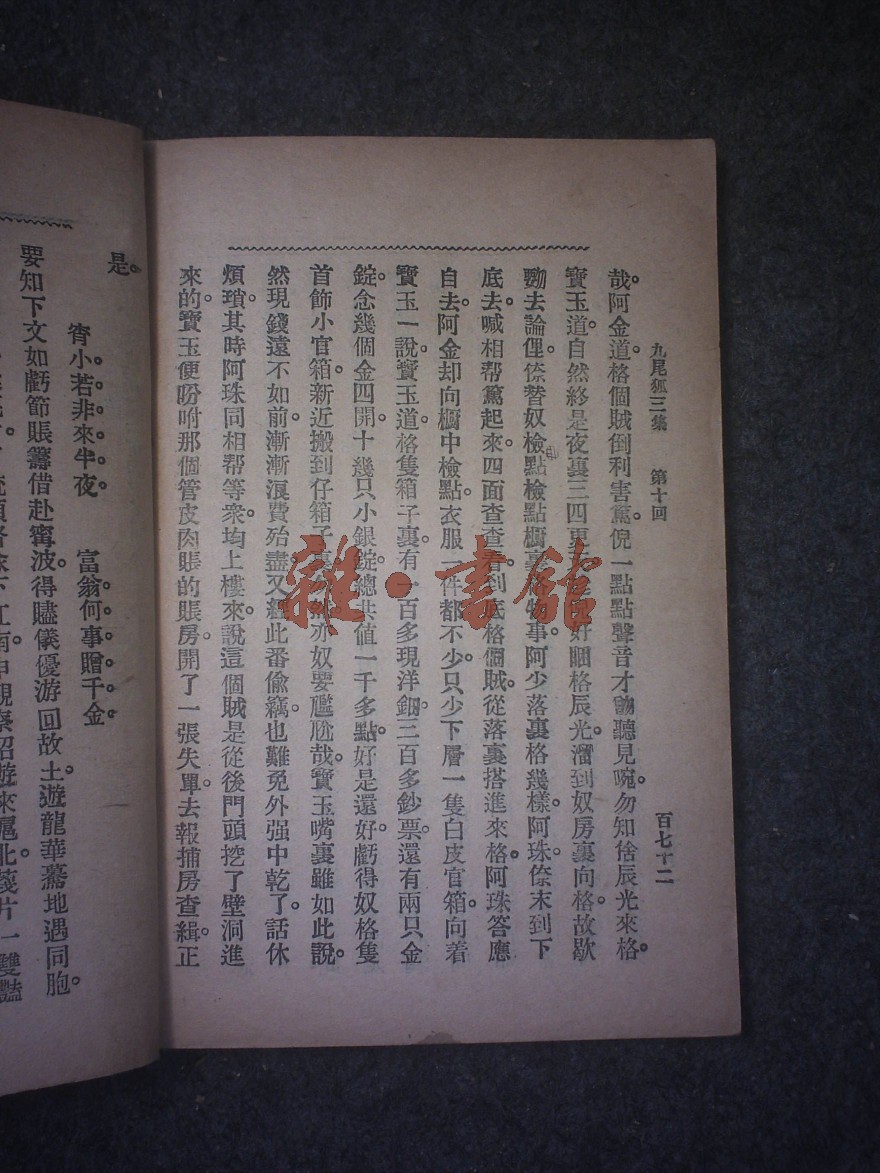 九尾狐三集 第十回 百七十二
哉。阿金道。格個賊倒利害篤。倪一點點聲音才嘸聽見啘。勿知俉辰光來格。
寶玉道。自然終是夜裏三四更 好睏格辰光。溜到奴房裏向格。故歇
嘞去論俚。倷替奴檢點檢點櫥裏 物事。阿少落裏格幾樣。阿珠倷末到下
底去。喊相帮篤起來。四面查查看。到底格個賊。從落裏搭進來格。阿珠答應
自去。阿金却向櫥中檢點。衣服一件都不少。只少下層一隻白皮官箱。向着
寶玉一說。寶玉道。格隻箱子裏。有一百多現洋鈿。三百多鈔票。還有兩只金
錠。念幾個金四開。十幾只小銀錠。總共値一千多點。好是還好。虧得奴格隻
首飾小官箱。新近搬到仔箱子裏 亦奴要尷尬哉。寶玉嘴裏雖如此說。
然現錢遠不如前。漸漸浪費殆盡。又經此番偷竊。也難免外强中乾了。話休
煩瑣。其時阿珠同相帮等衆。均上樓來。說這個賊是從後門頭挖了壁洞進
來的。寶玉便吩咐那個管皮肉賬的賬房。開了一張失單。去報捕房查緝。正
是。
宵小若非來半夜。 富翁何事贈千金。
要知下文如虧節賬籌借赴寗波。得贐儀優游回故土。遊龍華驀地遇同胞。
下江南申觀察招遊來滬北。篾片一雙豔
雜·書館